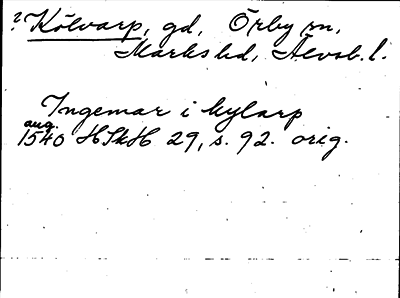 ? Kölvarp, gd, Örby sn,
Marks hd, Älvsb. l.
Ingemar i kylarp
aug.
1540 HSkH 29, s. 92. orig.